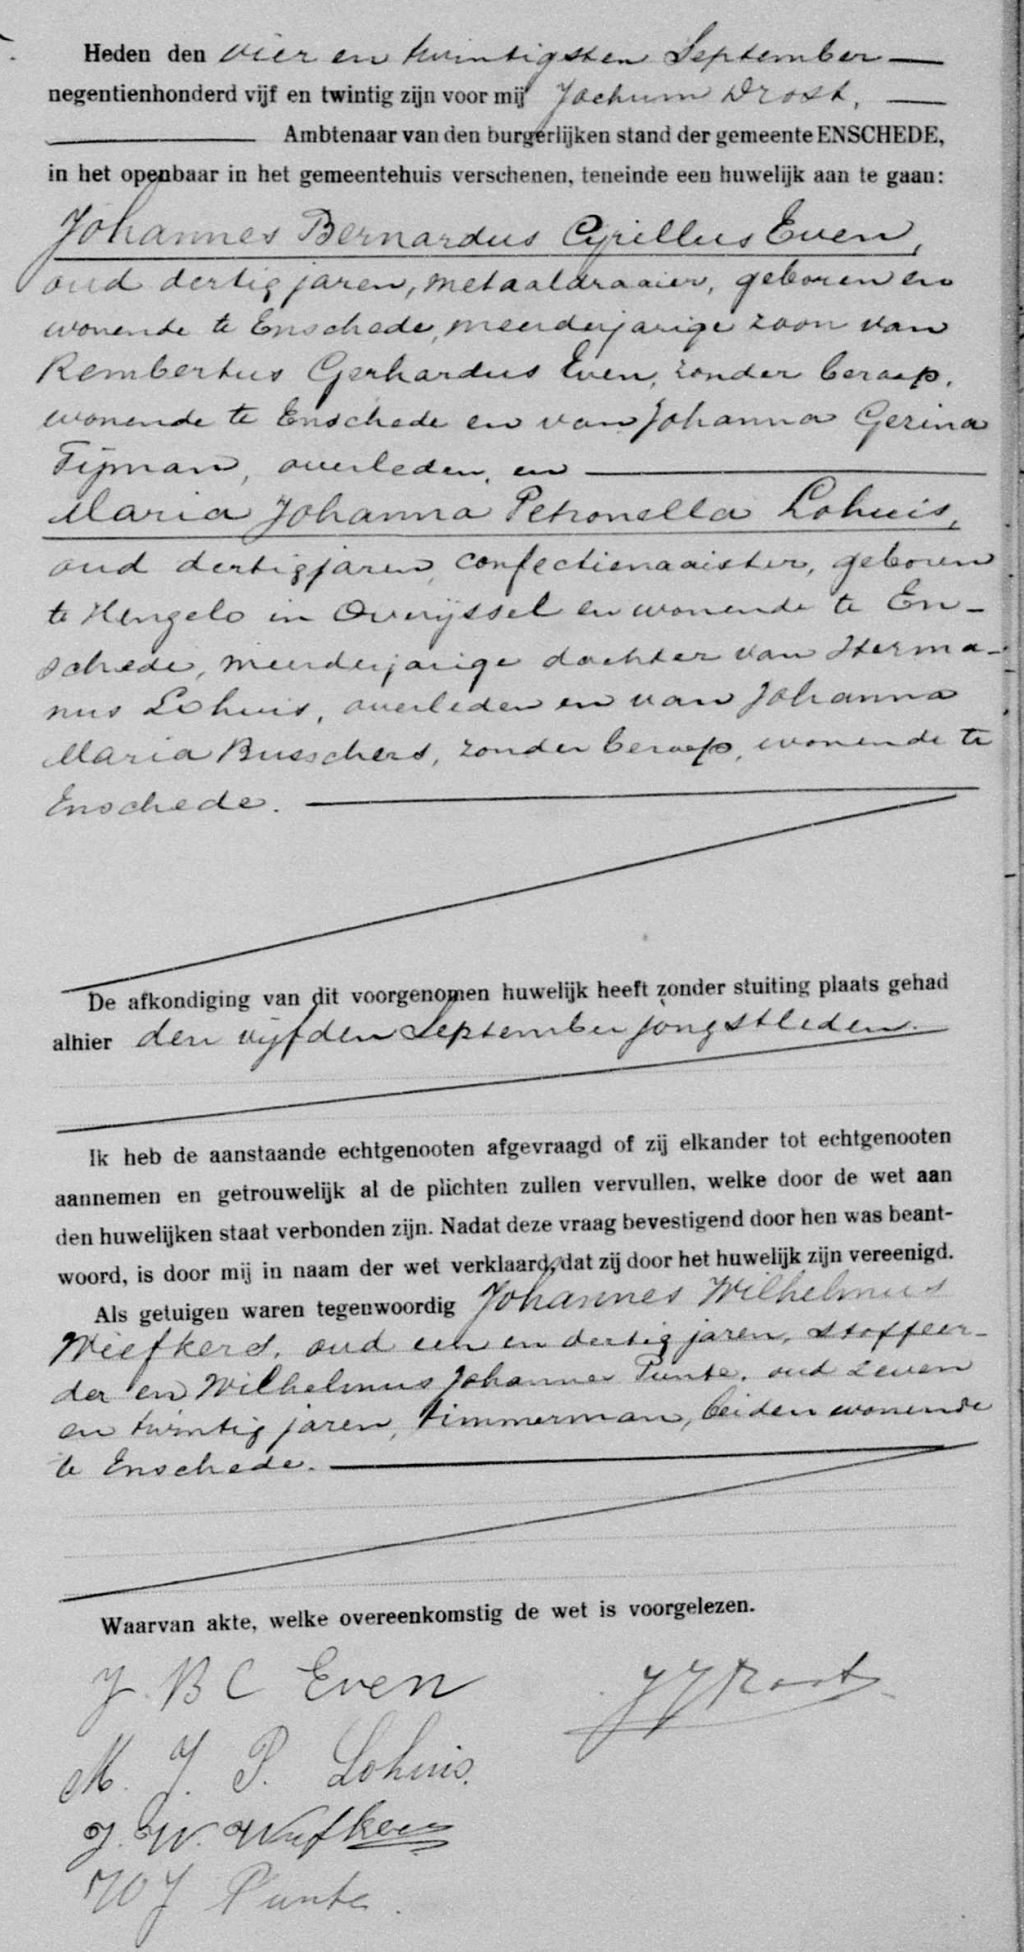 Heden den vier en twintigsten September
negentienhonderd vijf en twintig zijn voor mij Jochum Drost,
Ambtenaar van den burgerlijken stand der gemeente ENSCHEDE,
in het openbaar in het gemeentehuis verschenen, teneinde een huwelijk aan te gaan:
Johannes Bernardus Cyrillus Even,
oud dertig jaren, metaaldraaier, geboren en
wonende te Enschede, meerderjarige zoon van
Rembertus Gerhardus Even, zonder beroep,
wonende te Enschede en van Johanna Gezina
Tijman, overleden, en
Maria Johanna Petronella Lohuis,
oud dertig jaren, confectienaaister, geboren
te Hengelo in Overijssel en wonende te En-
schede, meerderjarige dochter van Herma-
nus Lohuis, overleden en van Johanna
Maria Busschers, zonder beroep, wonende te
Enschede.
De afkondiging van dit voorgenomen huwelijk heeft zonder stuiting plaats gehad
alhier den vijfden September jongstleden.
Ik heb de aanstaande echtgenooten afgevraagd of zij elkander tot echtgenooten
aannemen en getrouwelijk al de plichten zullen vervullen, welke door de wet aan
den huwelijken staat verbonden zijn. Nadat deze vraag bevestigend door hen was beant-
woord, is door mij in naam der wet verklaard, dat zij door het huwelijk zijn vereenigd.
Als getuigen waren tegenwoordig Johannes Wilhelmus
Wiefkers, oud een en dertig jaren, stoffeer-
der en Wilhelmus Johannes Punte, oud zeven
en twintig jaren, timmerman, beiden wonende
te Enschede.
Waarvan akte, welke overeenkomstig de wet is voorgelezen.
J. B C Even
JJDrost
M. J. P. Lohuis.
J. W. Wiefkers
W J Punte.